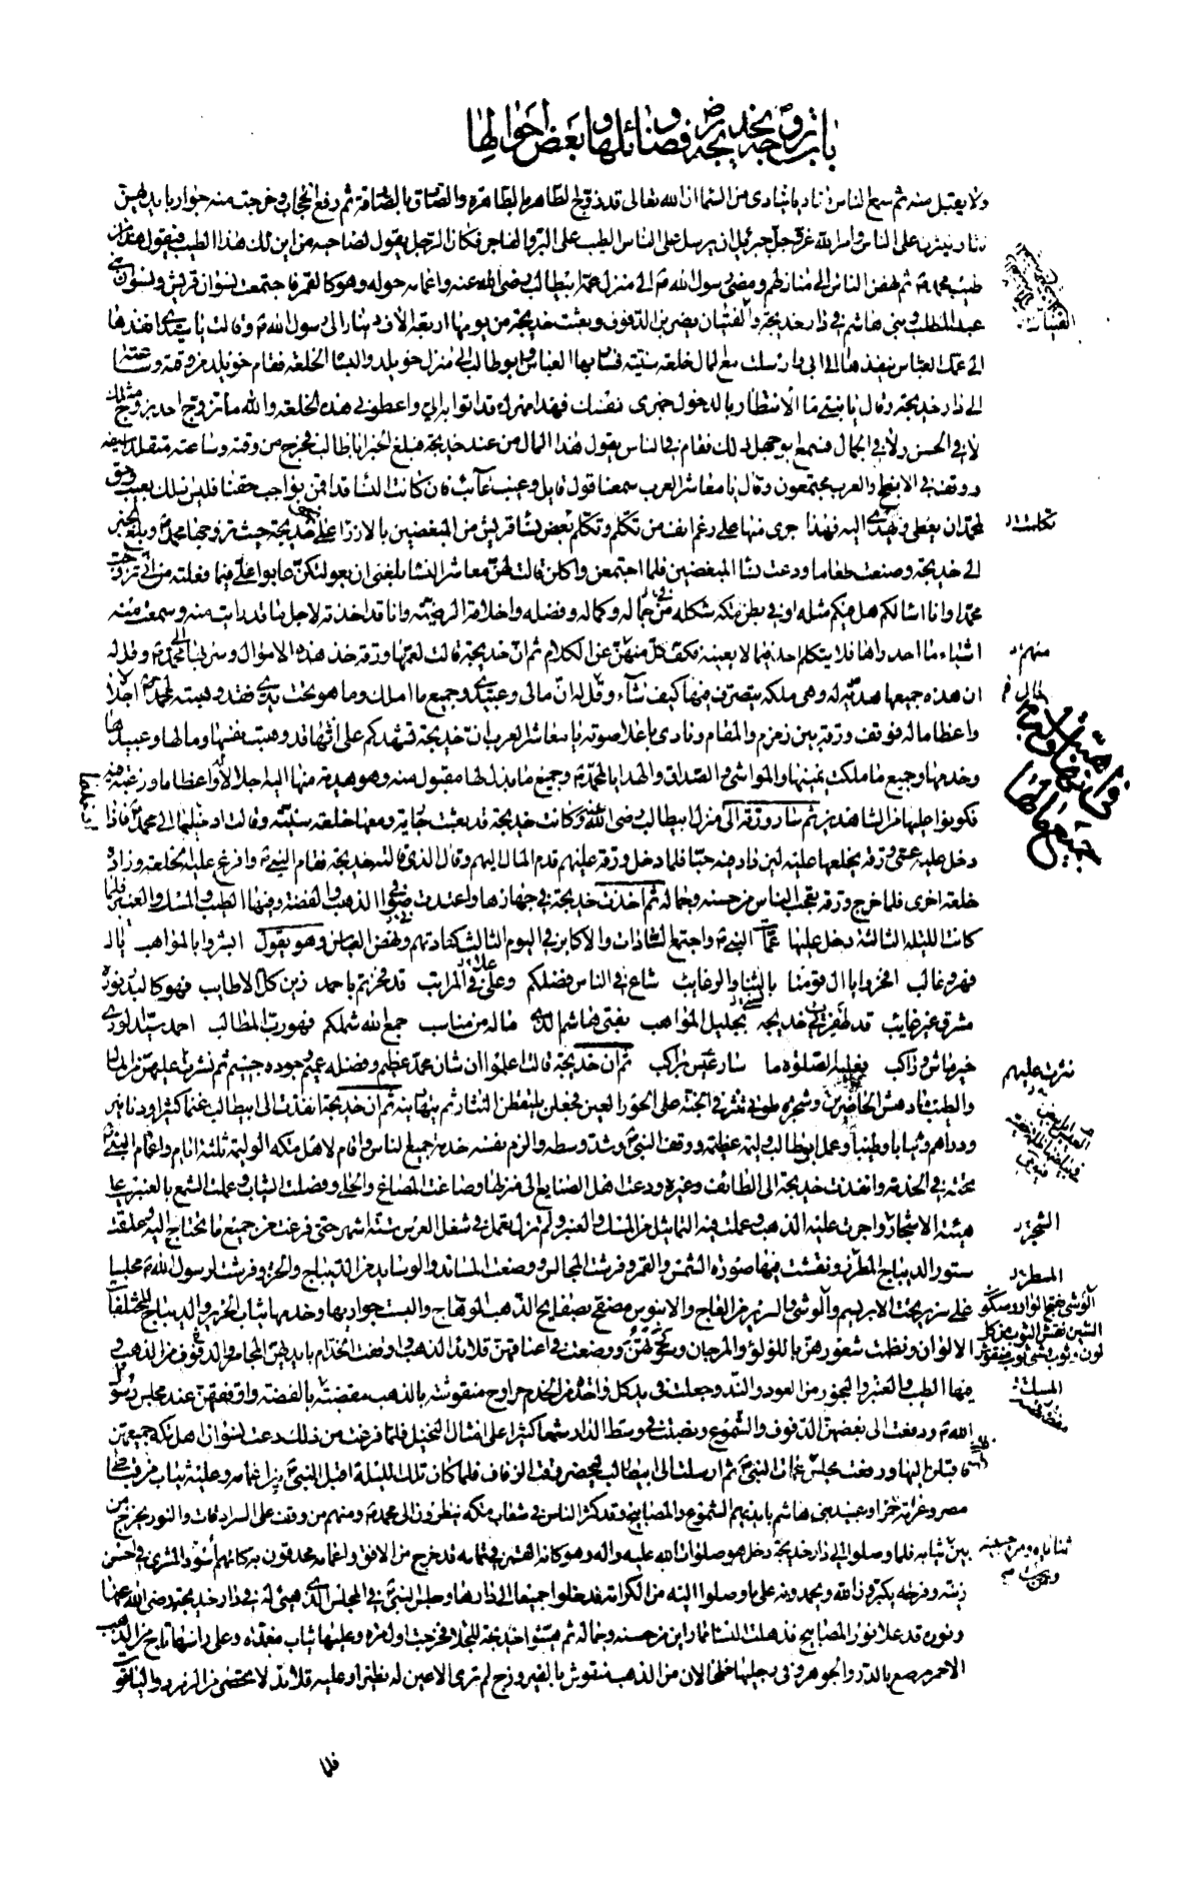 باب تزوجه بخديجة رض وفضائلها وبعض احوالها
ولا يقبل منه ثم سمع الناس مناديا ينادى من السماء ان الله تعالى قد زوج الطاهر بالطاهرة والصادق بالصادقة ثم رفع الحجاب وخرجت منه جوار بايديهن
نثار ينثرن على الناس وامر الله عز وجل جبرئيل ان يرسل على الناس الطيب على البر والفاجر فكان الرجل يقول لصاحبه من اين لك هذا الطيب فيقول هذا من
طيب محمد ثم نهض الناس الى منازلهم ومضى رسول الله الى منزل عمه ابيطالب رضى الله عنه واعمامه حوله وهو كالقمر فاجتمعت نسوان قريش ونسوان بنى
عبد المطلب وبنى هاشم فى دار خديجة والفتيان يضربن الدفوف وبعثت خديجة من يومها اربعة الاف دينار الى رسول الله وقالت يا سيدى انفذها
الى عمك العباس ينفذها الى ابى وارسلت مع المال خلعة سنية فسار بها العباس وابوطالب الى منزل خويلد والبساه الخلعة فقام خويلد من وقته وساعته
الى دار خديجة وقال يا بنتى ما الانتظار بالدخول جهزى نفسك فهذا مهرك قد اتوا به الى واعطونى هذه الخلعة والله ما تزوج احد بزوج مثلك
لا فى الحسن ولا فى الجمال فسمع ابوجهل ذلك فقام فى الناس يقول هذا المال من عند خديجة فبلغ الخبر ابا طالب فخرج من وقته وساعته متقلدا سيفه
ووقف فى الابطح والعرب مجتمعون وقال يا معاشر العرب سمعنا قول قايل وعيب عائب فان كانت النساء قد اقمن بواجب حقنا فليس ذلك بعيب وحق
لمحمد ان يعطى ويهدى اليه فهذا جرى منها على رغم انف من تكلم وتكلم بعض نساء قريش من المبغضين بالازراء على خديجة حيث تزوجها محمد وبلغ الخبر
الى خديجة وصنعت طعاما ودعت نساء المبغضين فلما اجتمعن واكلن قالت لهن معاشر النساء بلغنى ان بعولتكن عابوا على فيما فعلته من انى تزوجت
محمدا وانا اسالكم هل فيكم مثله او فى بطن مكة شكله من جماله وكماله وفضله واخلاقه الرضية وانا قد اخذته لاجل ما قد رايت منه وسمعت منه
اشياء ما احد راها فلا يتكلم احد فيما لا يعينه فكف كل منهن عن الكلام ثم ان خديجة قالت لعمها ورقة خذ هذه الاموال وسر بها الى محمد وقل له
ان هذه جميعها هدية له وهى ملكه يتصرف فيها كيف شاء وقل له ان مالى وعبيدى وجميع ما املك وما هو تحت يدى فقد وهبته لمحمد اجلالا
واعظاما له فوقف ورقة بين زمزم والمقام ونادى باعلا صوته يا معاشر العرب ان خديجة تشهدكم على انها قد وهبت نفسها ومالها وعبيدها
وخدمها وجميع ما ملكت يمينها والمواشى والصداق والهدايا لمحمد وجميع ما بذل لها مقبول منه وهو هدية منها اليه اجلالا له واعظاما ورغبة فيه
فكونوا عليها من الشاهدين ثم سار ورقة الى منزل ابيطالب رضى الله عنه وكانت خديجة قد بعثت جارية ومعها خلعة سنية وقالت ادخليها الى محمد فاذا
دخل عليه عمى ورقة يخلعها عليه ليزداد فيه حبا فلما دخل ورقة عليهم قدم المال اليهم وقال الذى قالته خديجة فقام النبى وافرغ عليه الخلعة وزاده
خلعة اخرى فلما خرج ورقة تعجب الناس من حسنه وجماله ثم اخذت خديجة فى جهازها واعتدت صوانى الذهب والفضة وفيها الطيب والمسك والعنبر فلما
كانت الليلة الثالثة دخل عليها عمات النبى واجتمع السادات والاكابر فى اليوم الثالث كعادتهم ونهض العباس وهو يقول ابشروا بالمواهب يال
فهر وغالب افخروا يال قومنا بالثناء والرغائب شاع فى الناس فضلكم وعلى فى المراتب قد فخرتم باحمد زين كل الاطايب فهو كالبدر نوره
مشرق غير غايب قد ظفرت خديجة بجليل المواهب بفتى هاشم الذى ماله من مناسب جمع الله شملكم فهو رب المطالب احمد سيد الورى
خير ماش وراكب فعليه الصلوة ما سار عيس براكب ثم ان خديجة قالت اعلموا ان شان محمد عظيم وفضله عميم وجوده جسيم ثم نثرت عليهن من المال
والطيب ما ادهش الحاضرين وشجرة طوبى تنثر فى الجنة على الحور العين فجعلن يلتقطن النثار ثم يتهادينه ثم ان خديجة انفذت الى ابيطالب غنما كثيرا ودنانير
ودراهم وثيابا وطيبا وعمل ابوطالب وليمة عظيمة ووقف النبى وشد وسطه والزم نفسه خدمة جميع الناس واقام لاهل مكة الوليمة ثلثة ايام واعمام النبى
تحته فى الخدمة وانفذت خديجة الى الطائف وغيره ودعت اهل الصنايع الى منزلها وصاغت المصاغ والحلى وفصلت الثياب وعملت الشمع بالعنبر على
هيئة الاشجار واجرت عليه الذهب وعملت فيه التماثيل من المسك والعنبر ولم تزل تعمل فى شغل العرس ستة اشهر حتى فرغت من جميع ما تحتاج اليه وعلقت
ستور الديباج المطرز ونقشت فيها صورة الشمس والقمر وفرشت المجالس ووضعت المساند والوسايد من الديباج والخز وفرشت لرسول الله مجلسا
على سرير تحت الابريسم والوشى والسرير من العاج والابنوس مصفح بصفايح الذهب الوهاج والبست جواريها وخدمها ثياب الحرير والديباج المختلفات
الالوان ونظمت شعورهن باللؤلؤ والمرجان وسورتهن ووضعت فى اعناقهن قلائد الذهب واوقفت الخدام بايديهن المجامر والدفوف من الذهب و
فيها الطيب والعنبر والبخور من العود والند وجعلت فى يد كل واحدة من الخدم مراوح منقوشة بالذهب مقصبة بالفضة واوقفتهن عند مجلس رسول
الله ودفعت الى بعضهن الدفوف والشموع ونصبت فى وسط الدار شمعا كثيرا على امثال النخيل فلما فرغت من ذلك دعت نسوان اهل مكة جميعهن
فاقبلن اليها ورفعت مجلس عمات النبى ثم ارسلت الى ابيطالب ليحضر وقت الزفاف فلما كان تلك الليلة اقبل النبى بين اعمامه وعليه ثياب من قباطى
مصر وعمامة حمراء وعبيد بنى هاشم بايديهم الشموع والمصابيح وقد كثر الناس فى شعاب مكة ينظرون الى محمد ومنهم من وقف على السرادقات والنور يخرج من
بين ثيابه فلما وصلوا الى دار خديجة دخل هو صلوات الله عليه واله وهو كانه القمر فى تمامه قد خرج من الافق واعمامه محدقون به كانهم اسود الشرى فى احسن
زينة وفرحة يكبرون الله ويحمدونه على ما وصلوا اليه من الكرامة فدخلوا جميعا الى دارها وجلس النبى فى المجلس الذى هيئى له فى دار خديجة رضى الله عنها
ونوره قد علا نور المصابيح فذهلت النساء مما راين من حسنه وجماله ثم هيئوا خديجة للجلاء فخرجت اول مرة وعليها ثياب معمدة وعلى راسها تاج من الذهب
الاحمر مرصع بالدر والجوهر وفى رجليها خلخالان من الذهب منقوش بالفيروزج لم ترى الاعين له نظيرا وعليه قلائد لا تحصى من الزمرد والياقوت
فلما
القينات
تكلمت
منهم
فى هبته نفسها وجميع مالها
نثرت عليهم
الشجر
المطرز
الوشى نقش الثوب من كل لون